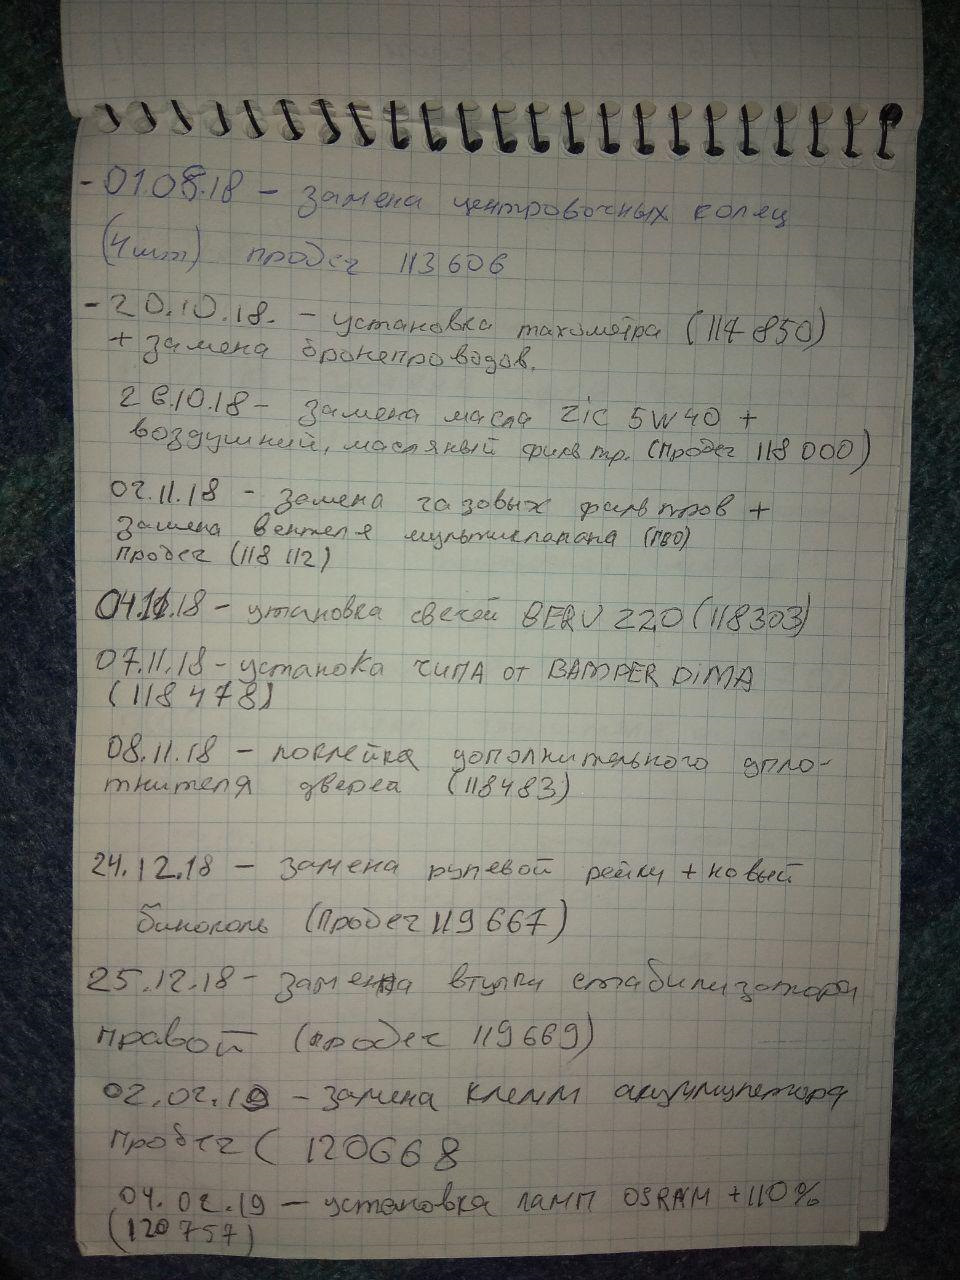 - 01.08.18 - замена центровочных колец
(4шт) пробег 113606
- 20.10.18. - установка тахометра (117850)
+ замена бронепроводов.
26.10.18 - замена масла ZIC 5W40 +
воздушний, масляный фильтр. (Пробег 118000)
02.11.18 - замена газовых фильтров +
замена вентеля мультиклапана
пробег (118112)
04.11.18 - установка свечей BERU Z20 (118303)
07.11.18 - устанока чипа от BAMPER DiMA
(118478)
08.11.18 - поклейка дополнительного упло-
тнителя дверей (118483)
24.12.18 - замена рулевой рейки + новый
бинокль (Пробег 119667)
25.12.18 - замена втулки стабилизатора
правой (пробег 119669)
02.02.19 - замена клемм аккумулятора
Пробег ( 120668
04.02.19 - установка ламп OSRAM +110%
(120757)